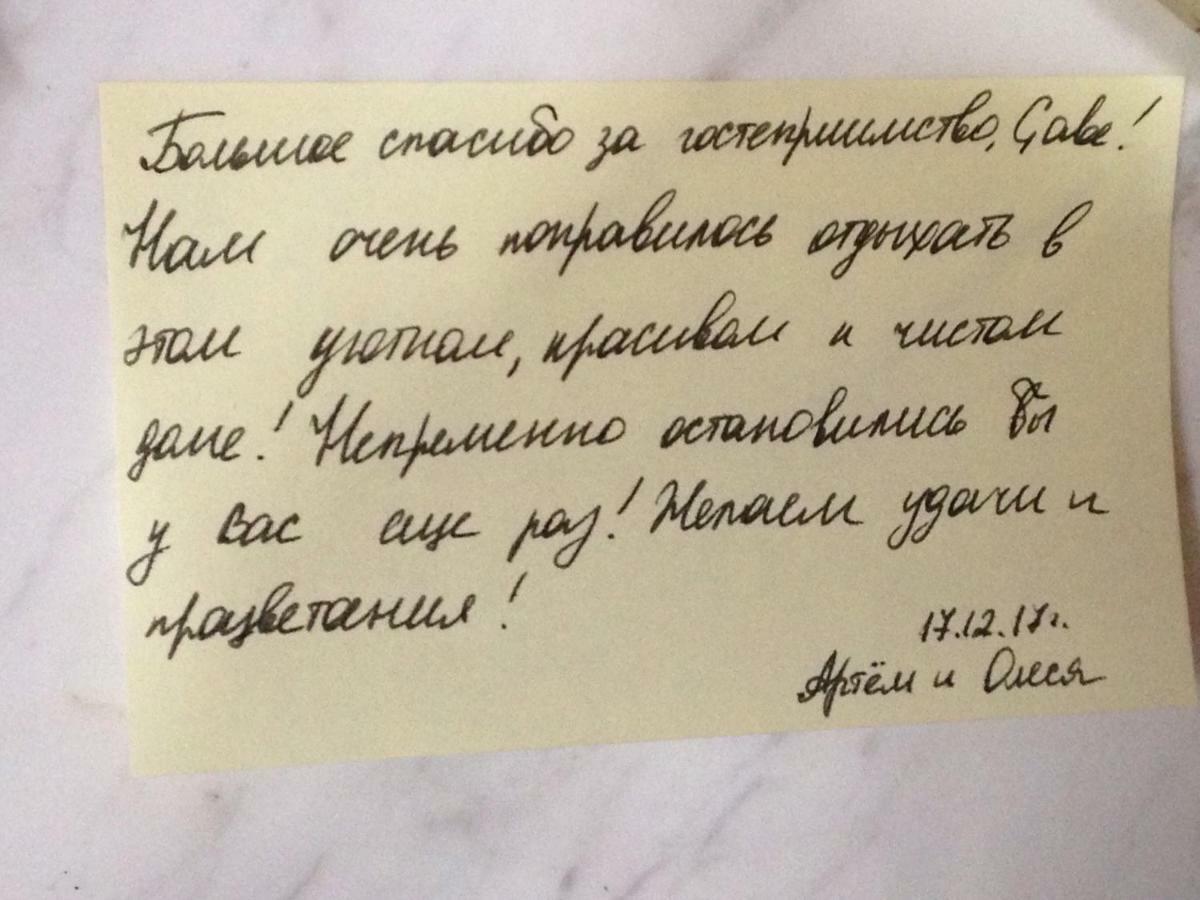 Большое спасибо за гостеприимство, Gabe!
Нам очень понравилось отдыхать в
этом уютном, красивом и чистом
доме! Непременно остановились бы
у вас еще раз! Желаем удачи и
процветания!
17.12.17г.
Артём и Олеся